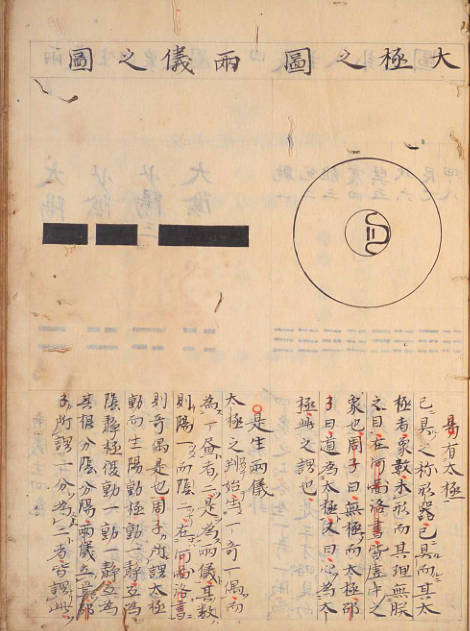 大極之圖
兩儀之圖
易有太極
已具之称形器已具而其太
極者象數未形而其理無朕
之目在河啚洛書皆虛中之
象也周子曰無極而太極邵
子曰道為太極又曰心為太
極此之謂也
是生兩儀
太極之判始生一奇一偶而
為一畫者二是為兩儀其數
則陽一而陰二在河啚洛書
則奇偶是也周子所謂太極
動而生陽動極動一靜
陰靜極復動一動一靜互為
其根分陰分陽兩儀立焉邵
子所謂一分為二者皆謂此